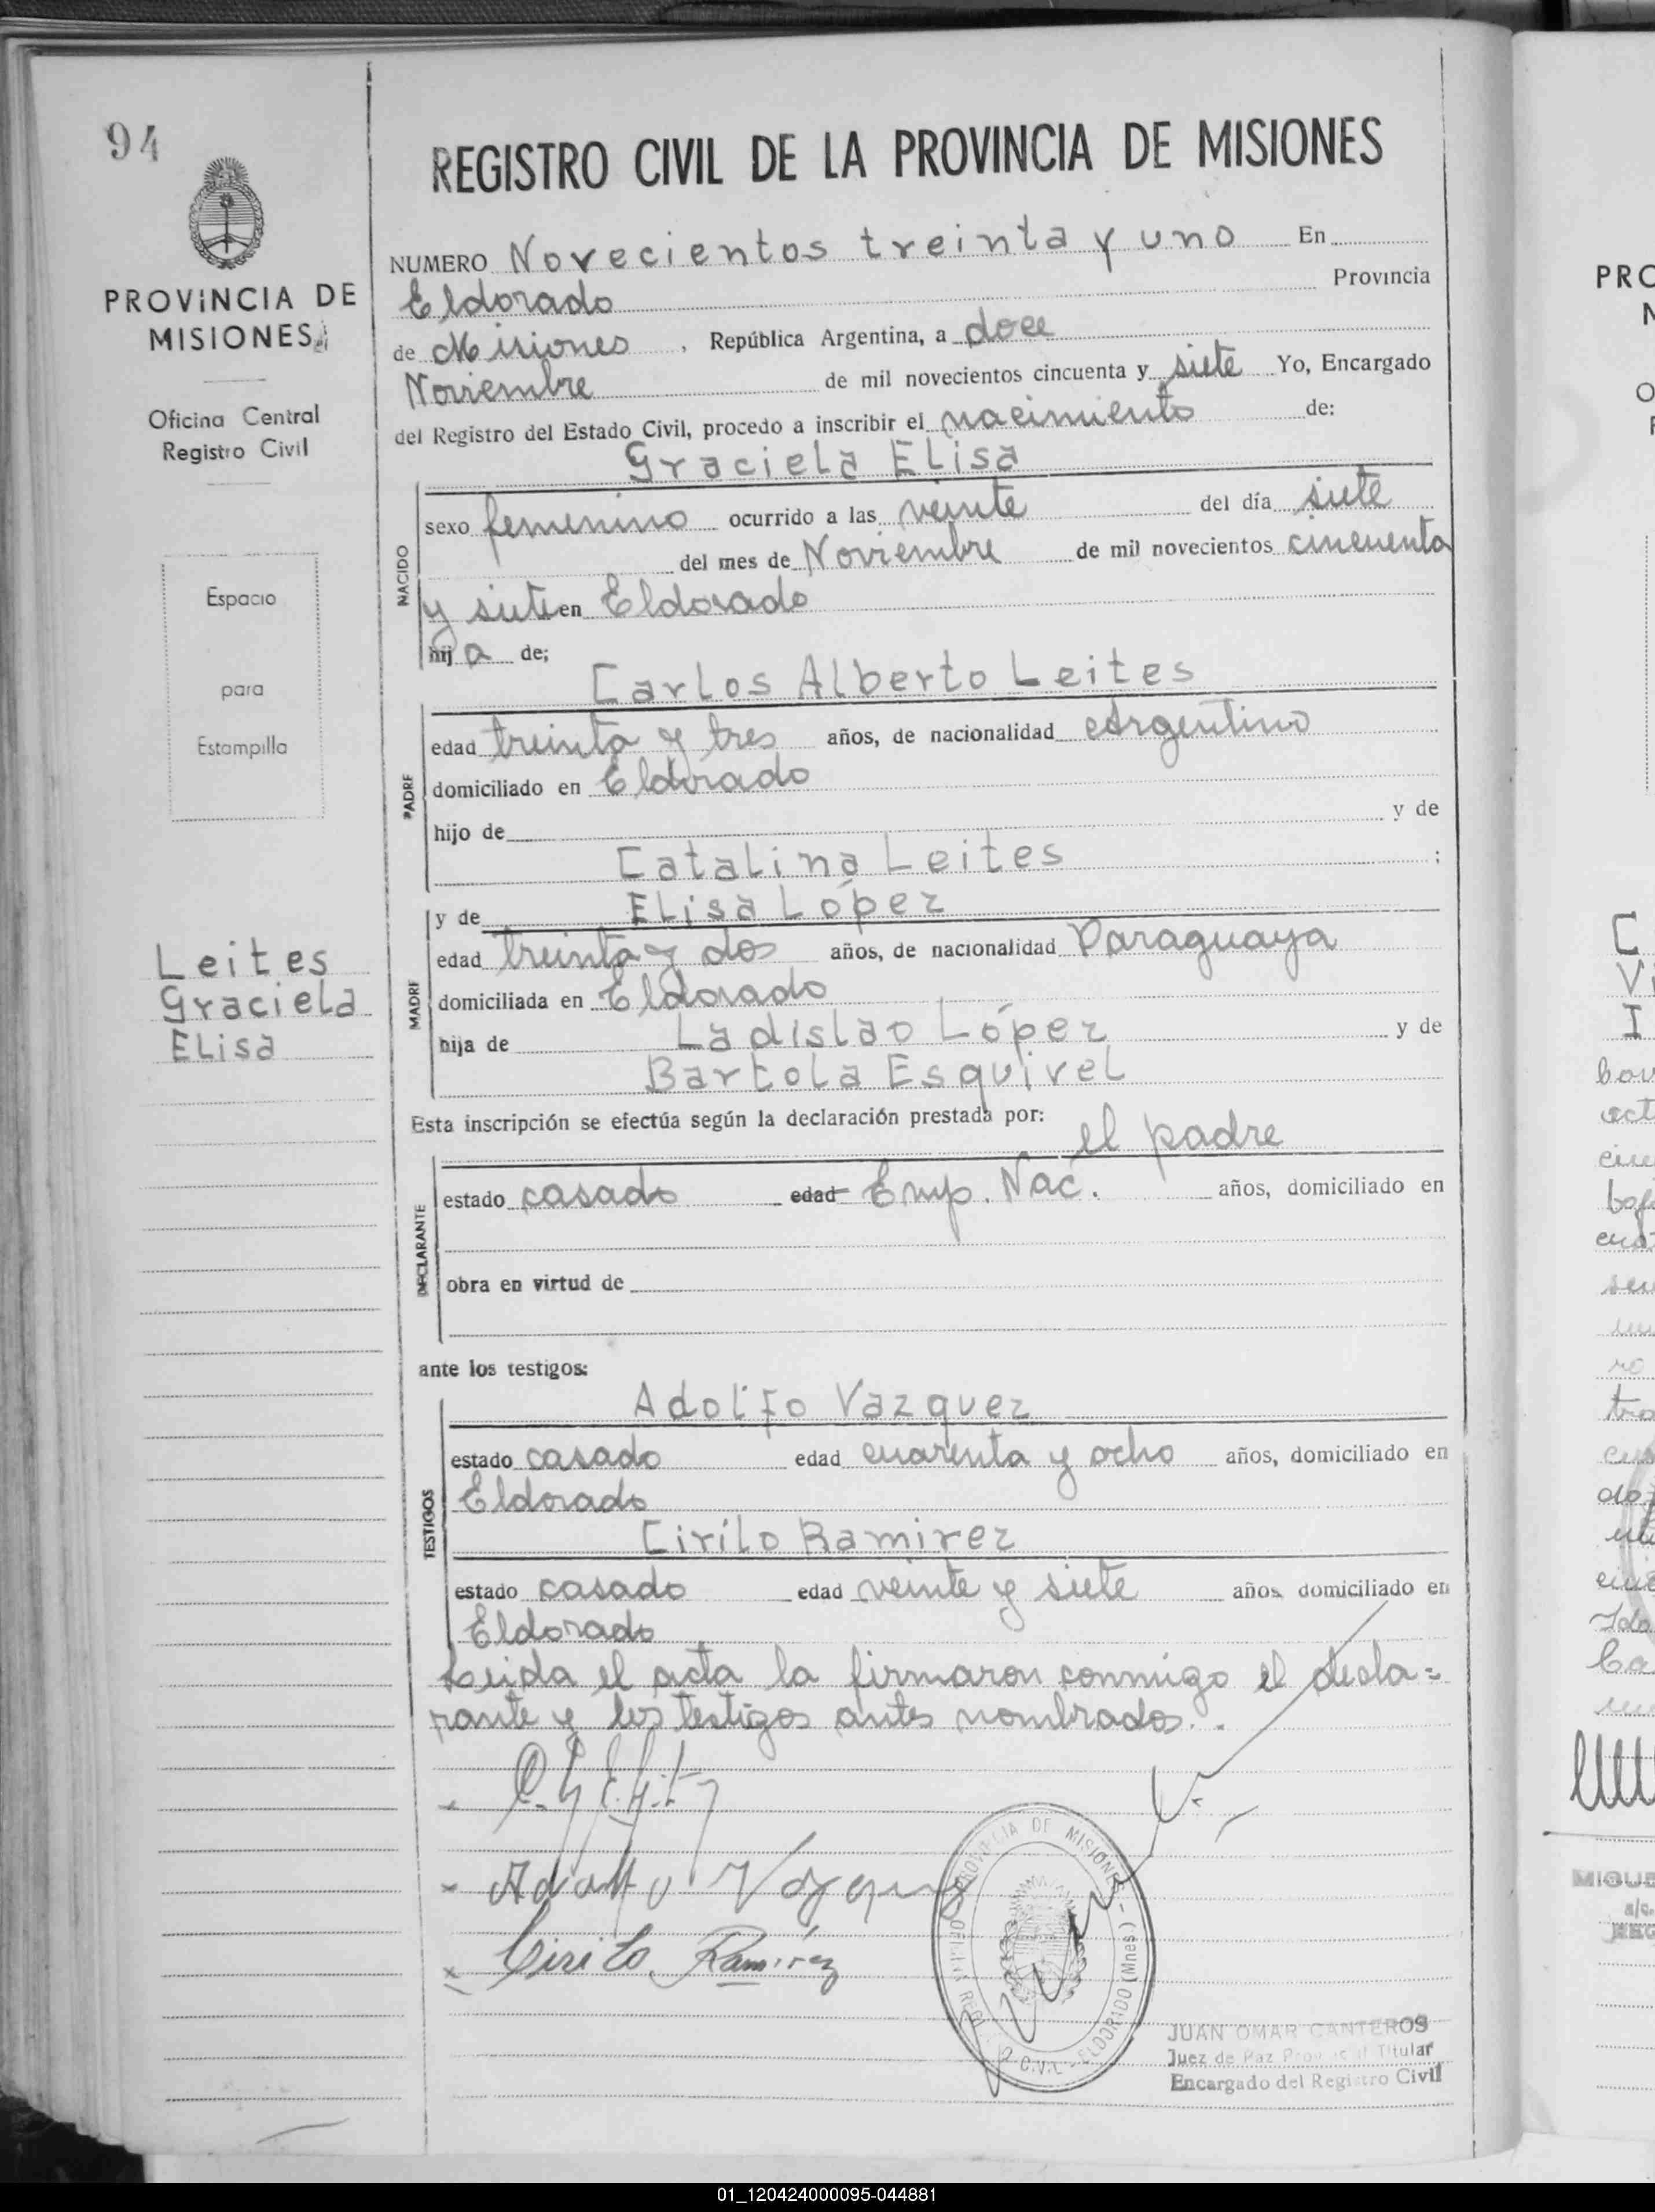 94
REGISTRO CIVIL DE LA PROVINCIA DE MISIONES
PROVINCIA DE
MISIONES
Oficina Central
Registro Civil
Espacio
para
Estampilla
Leites
Graciela
Elisa
NUMERO Novecientos treinta y uno En
Eldorado Provincia
de Misiones, República Argentina, a doce
Noviembre de mil novecientos cincuenta y siete Yo, Encargado
del Registro del Estado Civil, procedo a inscribir el nacimiento de:
Graciela Elisa
NACIDO
sexo femenino ocurrido a las veinte del día siete
del mes de Noviembre de mil novecientos cincuenta
y siete en Eldorado
hija de;
Carlos Alberto Leites
PADRE
edad treinta y tres años, de nacionalidad Argentino
domiciliado en Eldorado
hijo de y de
Catalina Leites ;
y de Elisa López
MADRE
edad treinta y dos años, de nacionalidad Paraguaya
domiciliada en Eldorado
hija de Ladislao López y de
Bartola Esquivel
Esta inscripción se efectúa según la declaración prestada por:
el padre
DECLARANTE
estado casado edad Emp. Nac. años, domiciliado en
obra en virtud de
ante los testigos:
Adolfo Vazquez
TESTIGOS
estado casado edad cuarenta y ocho años, domiciliado en
Eldorado
Cirilo Ramirez
estado casado edad veinte y siete años domiciliado en
Eldorado
Leida el acta la firmaron conmigo el decla=
rante y los testigos antes nombrados..
Cirilo Ramírez
PROVINCIA DE MISIONES - ELDORADO (Mnes)
JUAN OMAR CANTEROS
Juez de Paz Titular
Encargado del Registro Civil
PRO
MIGUE
01_120424000095-044881